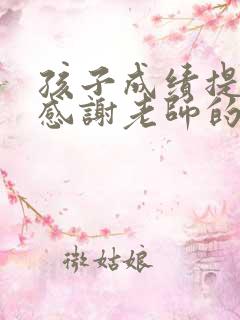 孩子成绩提
感謝老師的
微姑娘